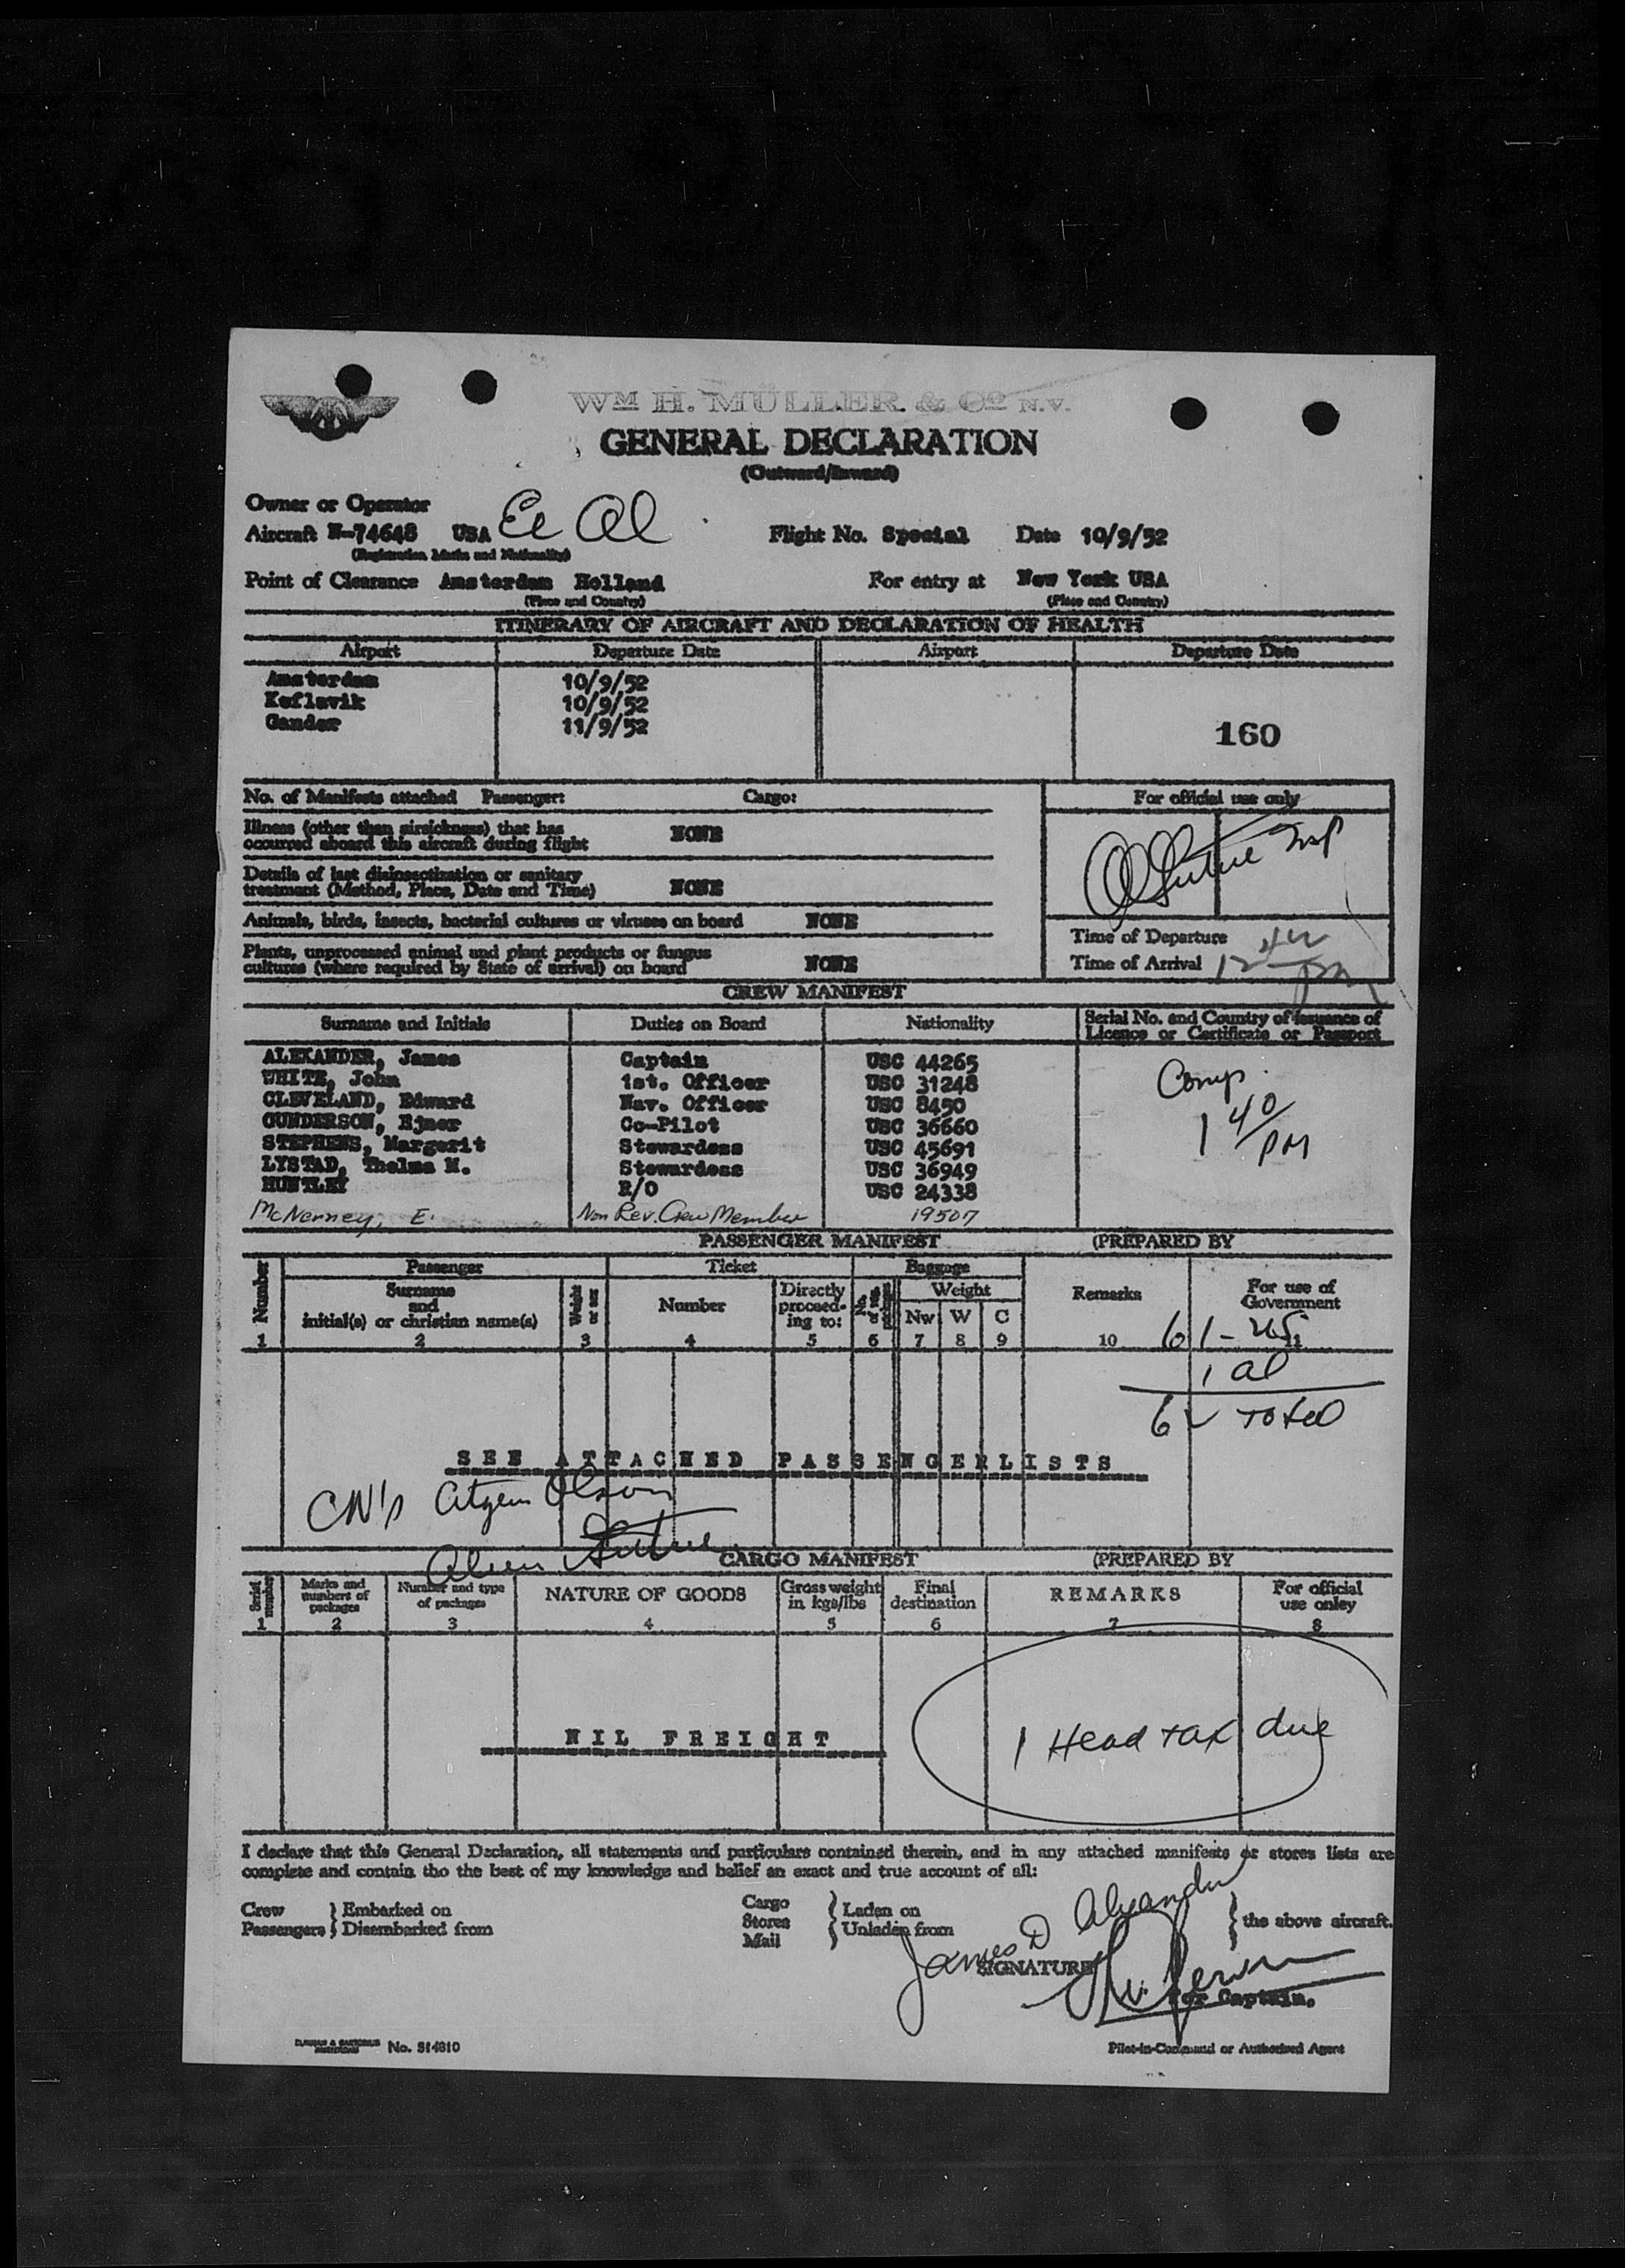 WM H. MÜLLER & Co N.V.
GENERAL DECLARATION
(Outward/Inward)
Owner or Operator
Aircraft N-74648 USA Ee Al Flight No. Special Date 10/9/52
(Registration Marks and Nationality)
Point of Clearance Amsterdam Holland For entry at New York USA
(Place and Country) (Place and Country)
ITINERARY OF AIRCRAFT AND DECLARATION OF HEALTH
Airport Departure Date Airport Departure Date
Amsterdam 10/9/52
Keflavik 10/9/52
Gander 11/9/52
160
No. of Manifests attached Passenger: Cargo: For official use only
Illness (other than airsickness) that has
occurred aboard this aircraft during flight NONE
Details of last disinsectization or sanitary
treatment (Method, Place, Date and Time) NONE
Animals, birds, insects, bacterial cultures or viruses on board NONE
Time of Departure
Plants, unprocessed animal and plant products or fungus
cultures (where required by State of arrival) on board NONE
Time of Arrival 12 42 PM
CREW MANIFEST
Surname and Initials Duties on Board Nationality Serial No. and Country of Issuance of
Licence or Certificate or Passport
ALEXANDER, James Captain USC 44265
WHITE, John 1st. Officer USC 31248
CLEVELAND, Edward Nav. Officer USC 8450
GUNDERSON, Ejner Co-Pilot USC 36660
STEPHENS, Margerit Stewardess USC 45691
LYSTAD, Thelma M. Stewardess USC 36949
HUNTLEY R/O USC 24338
McNerney, E. Non Rev. Crew Member 19507
Comp.
1 40 PM
PASSENGER MANIFEST (PREPARED BY
Number Passenger Ticket Baggage Remarks For use of
Government
Surname
and
initial(s) or christian name(s) Weight or sex Number Directly
proceed-
ing to: No. of Weight
Nw W C
1 2 3 4 5 6 7 8 9 10 11
61 - US
1 al
62 Total
SEE ATTACHED PASSENGERLISTS
CN's Citizen Olson
Alien
CARGO MANIFEST (PREPARED BY
Serial number Marks and
numbers of
packages Number and type
of packages NATURE OF GOODS Gross weight
in kgs/lbs Final
destination REMARKS For official
use onley
1 2 3 4 5 6 7 8
NIL FREIGHT
1 Head tax due
I declare that this General Declaration, all statements and particulars contained therein, and in any attached manifests or stores lists are
complete and contain tho the best of my knowledge and belief an exact and true account of all:
Crew } Embarked on
Passengers } Disembarked from
Cargo
Stores
Mail
{ Laden on
Unladen from
} the above aircraft.
James D Alexander
SIGNATURE
For Captain.
No. 514810
Pilot-in-Command or Authorised Agent